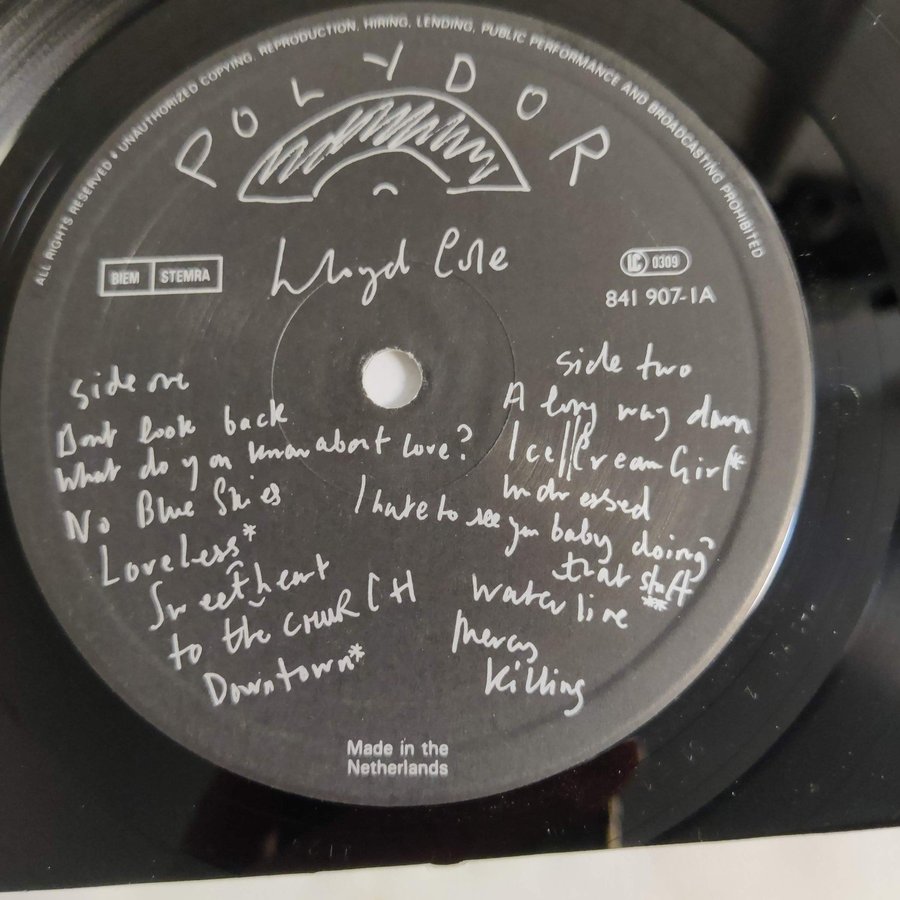 ALL RIGHTS RESERVED • UNAUTHORIZED COPYING, REPRODUCTION, HIRING, LENDING, PUBLIC PERFORMANCE AND BROADCASTING PROHIBITED
POLYDOR
Lloyd Cole
BIEM STEMRA
LC 0309
841 907-1A
side one
Dont look back
What do you know about love?
No Blue Skies
Loveless*
Sweetheart
to the CHURCH
Downtown*
side two
A long way down
Ice Cream Girl*
undressed
I hate to see you baby doing
that stuff
**
waterline
Mercy
killing
Made in the
Netherlands